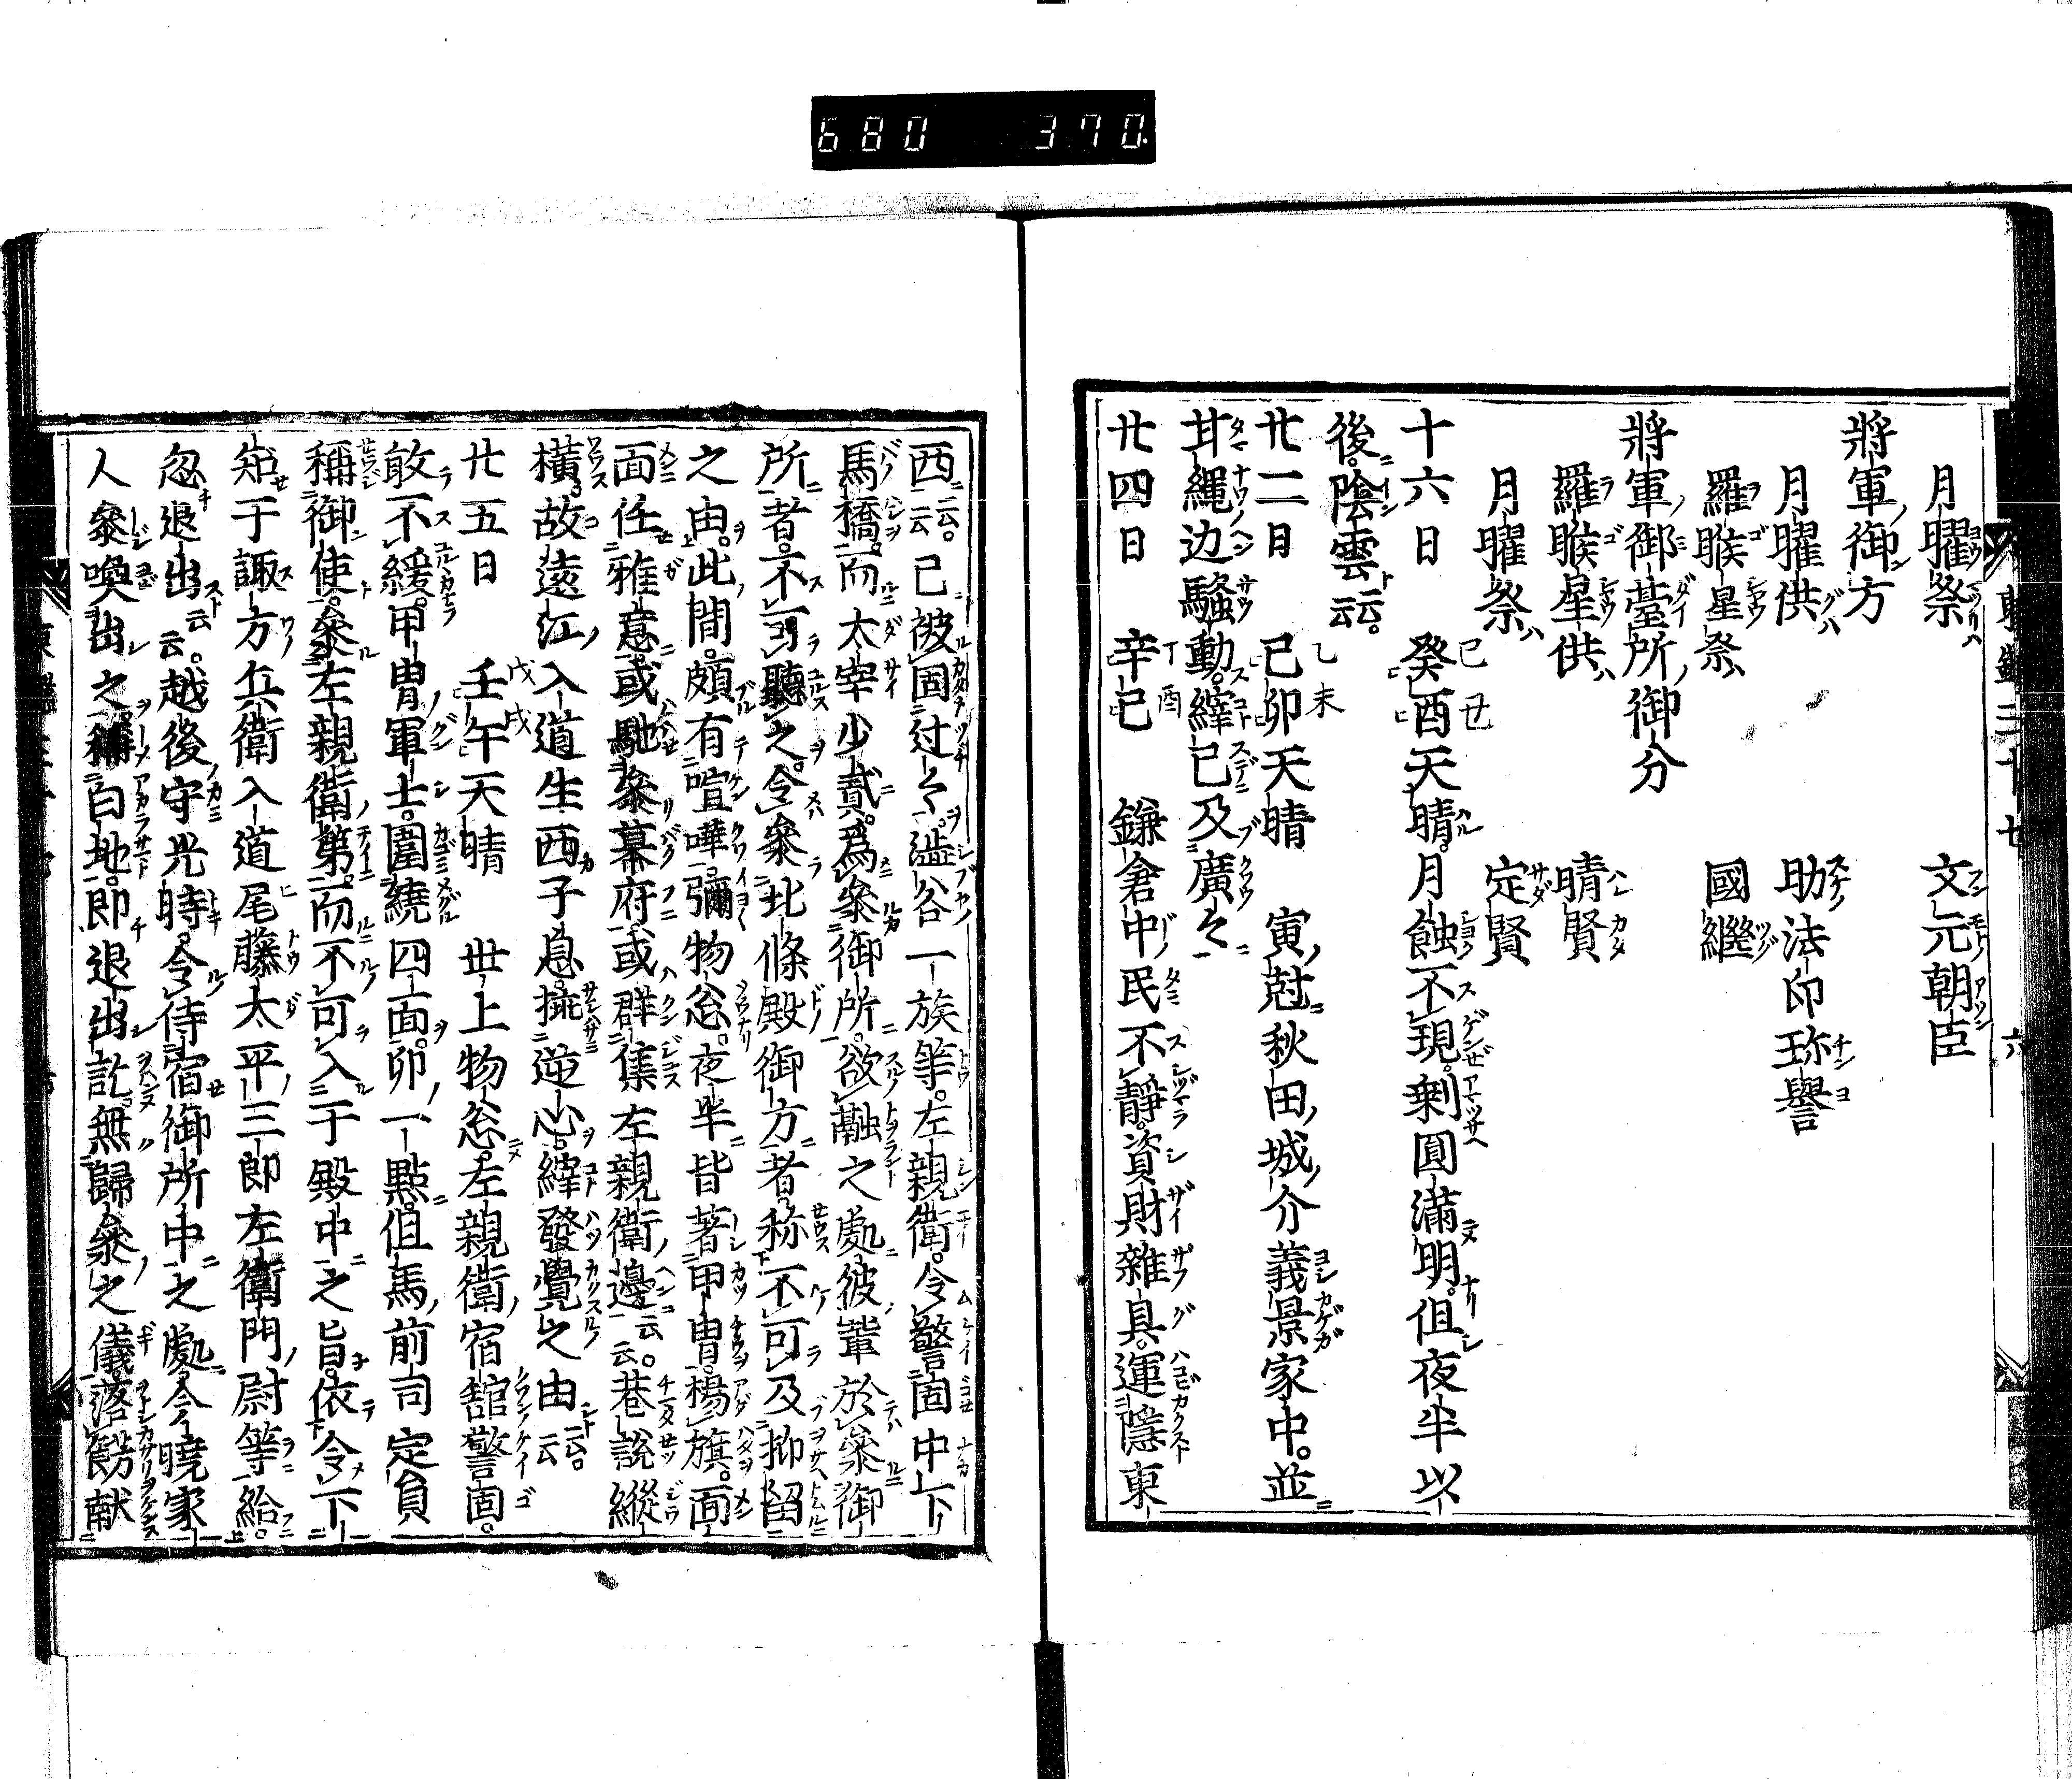 680 370.
月曜祭 文元朝臣
將軍御方
月曜供 助法印珎譽
羅睺星祭 國継
將軍御臺所御分
羅睺星供 晴賢
月曜祭 定賢
十六日 癸酉天晴。月蝕不現。剰圓満明。但夜半以
後。陰雲云云。
廿二日 己卯天晴 寅尅秋田城介義景家中。並
甘縄辺騒動。縡已及廣々
廿四日 辛巳 鎌倉中民不靜。資財雜具。運隱東
西云云。已被固辻々。澁谷一族等。左親衛。令警固中下
馬橋。而太宰少貳。爲參御所。欲融之處。彼輩於參御
所者。不可聽之。令參北條殿御方者。称不可及抑留
之由。此間。頗有喧嘩。彌物忩。夜半皆著甲冑。揚旗。面
面任雅意。或馳參幕府。或群集左親衛邊云云。巷説縱
横。故遠江入道生西子息。挿逆心。縡發覺之由云云。
廿五日 壬午天晴 世上物忩。左親衛宿舘警固。
敢不緩。甲冑軍士。圍繞四面。卯一點。但馬前司定員
稱御使。參左親衛第。而不可入于殿中之旨。依令下
知于諏方兵衛入道尾藤太平三郎左衛門尉等給。
忽退出云云。越後守光時。令侍宿御所中之處。今曉家
人參喚出之稱白地。即退出訖。無歸參之儀。落餝献